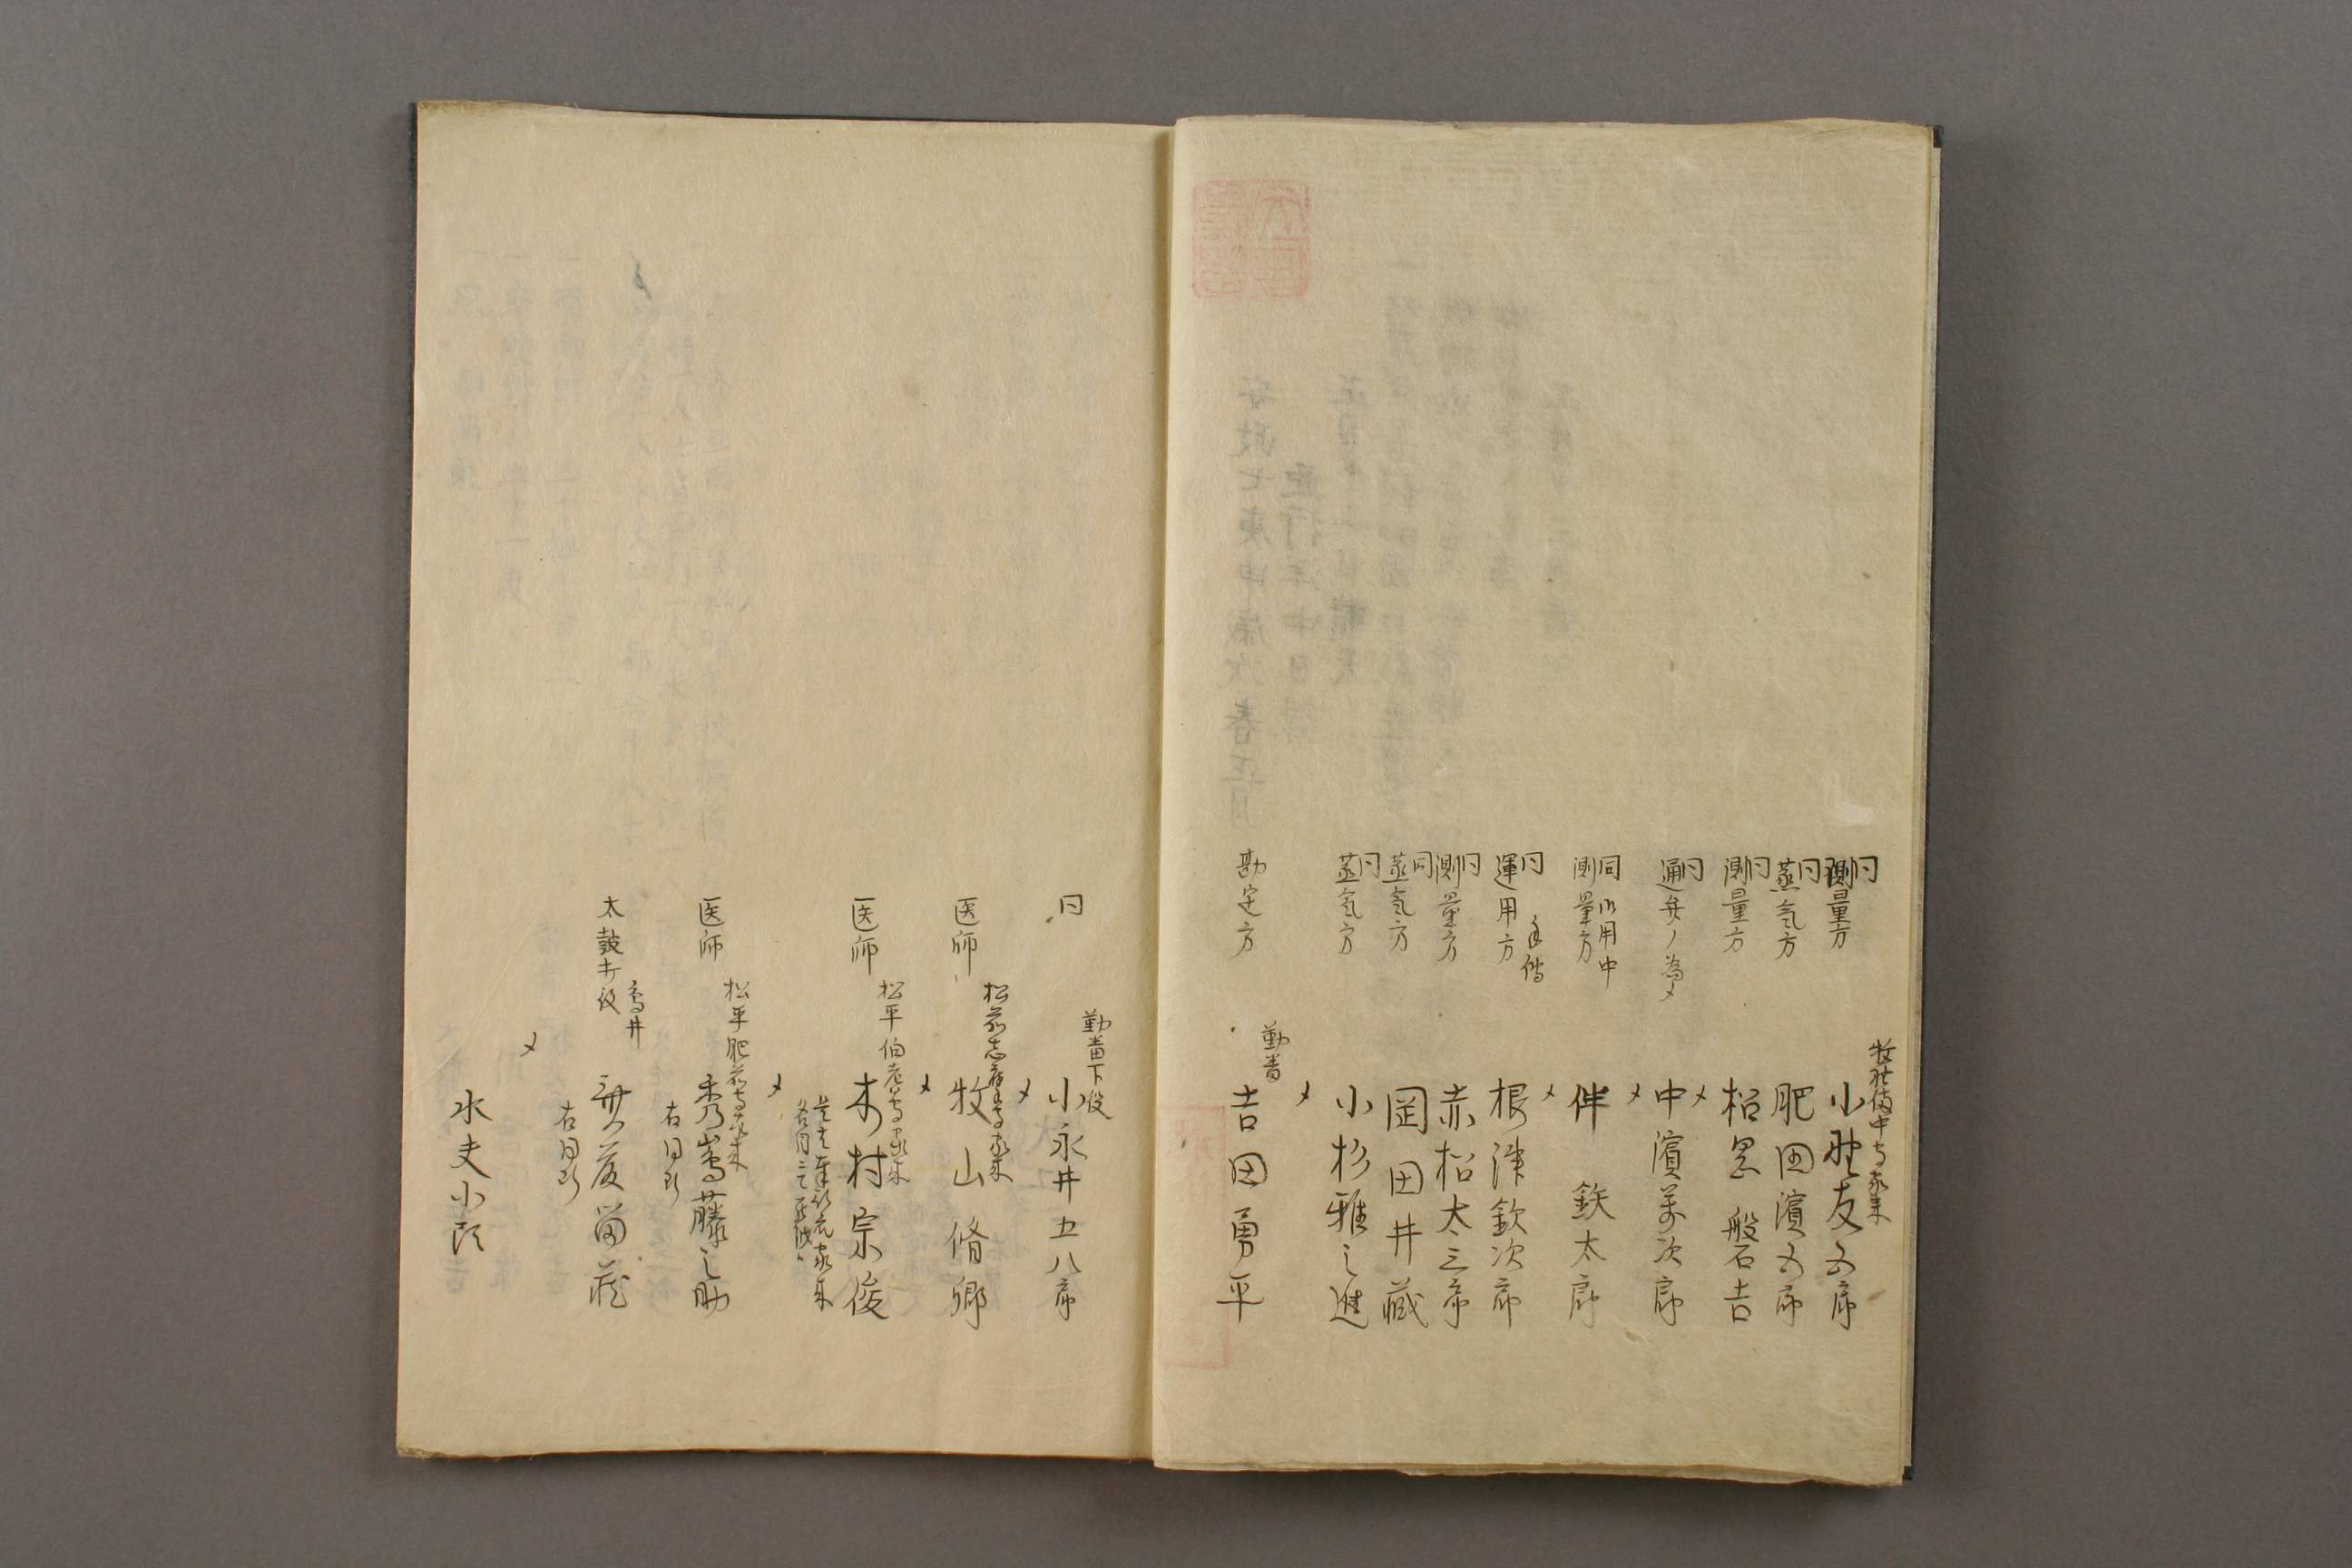 同
測量方
牧野備中守家来
小野友五郎
同
蒸氣方
肥田濱五郎
同
測量方
松岡磐吉
同
通弁ノ為メ
中濱萬次郎
同 御用中
測量方
伴 鉄太郎
同
運用方
根津欽次郎
同
測量方
赤松大三郎
同
蒸氣方
岡田井藏
同
蒸氣方
小杉雅之進
勘定方
勤番
吉田勇平
同
勤番下役
小永井五八郎
医師
松前志摩守家来
牧山脩卿
医師
松平伯耆守家来
木村宗俊
医師
松平肥前守家来
秀嶌藤之助
右同断
太鼓打役
斎藤留蔵
右同断
水夫小頭